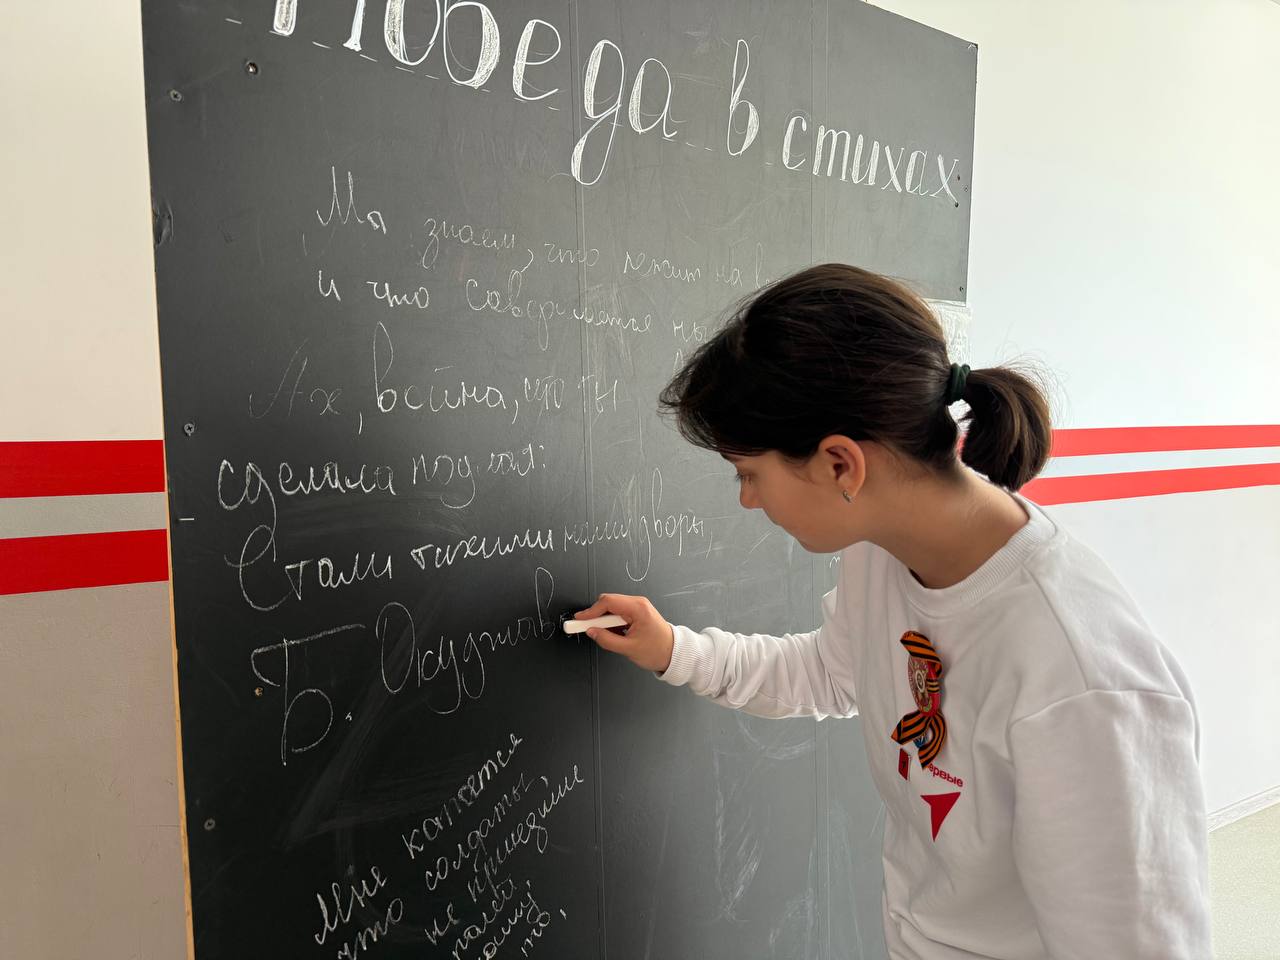 Победа в стихах
Мы знаем, что лежит на
и что совершается
Ах, война, что ты
сделала подлая:
Стали тихими наши дворы,
Б. Окуджав
Мне кажется
что солдаты
не пришедшие
полей,
ервые